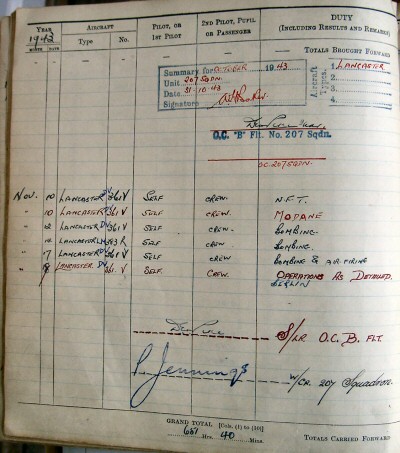 YEAR AIRCRAFT PILOT, OR 2ND PILOT, PUPIL DUTY
1943 1ST PILOT OR PASSENGER (INCLUDING RESULTS AND REMARKS)
MONTH DATE Type No.
— — — — — TOTALS BROUGHT FORWARD
Summary for OCTOBER 1943
Unit 207 SQDN.
Date 31-10-43
Signature
Aircraft Types
1. LANCASTER
2.
3.
4.
O.C. "B" Flt. No. 207 Sqdn.
O.C. 207 SQDN.
Nov. 10 LANCASTER DV 361 V SELF CREW. N.F.T.
" 10 LANCASTER DV 361 V SELF CREW. MODANE
" 12 LANCASTER DV 361 V SELF CREW. BOMBING.
" 14 LANCASTER R SELF CREW BOMBING.
" 17 LANCASTER DV 361 V SELF CREW. BOMBING & AIR FIRING
" 18 LANCASTER DV 361 V SELF. CREW. OPERATIONS AS DETAILED.
BERLIN
S/LR. O.C. B. FLT.
P. Jennings W/CR. 207 Squadron.
GRAND TOTAL [Cols. (1) to (10)]
651 Hrs. 40 Mins. TOTALS CARRIED FORWARD